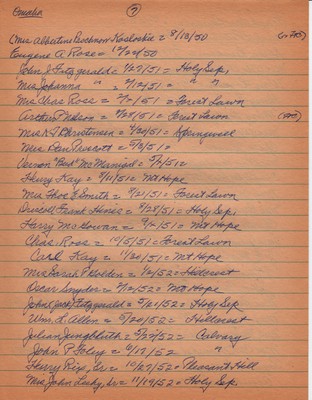 Omaha 7
(Mrs Albertine Bochnow Koskoskie = 8/13/50
Eugene A. Rose = 12/29/50
John J. Fitzgerald = 1/27/51 = Holy Sep.
Mrs Johanna " = 2/17/51 = " "
Mrs Chas Rose = 2/ /51 = Forest Lawn
Arthur Nelson = 4/28/51 = Forest Lawn
Mrs N. P. Christensen = 4/20/51 = Springwell
Mrs Ben Prescott = 5/3/51 =
Vernon "Bud" McManigal = 5/ /51 =
Henry Kay = 9/11/51 = Mt Hope
Mrs Thos E Smith = 8/21/51 = Forest Lawn
Driscoll Frank Hanes = 8/28/51 = Holy Sep.
Harry McGowan = 9/ /51 = Mt Hope
Chas. Ross = 10/5/51 = Forest Lawn
Carl Kay = 11/20/51 = Mt Hope
Mrs Sarah P. Golden = 1/2/52 = Hillcrest
Oscar Snyder = 2/12/52 = Mt Hope
John (Jack) Fitzgerald = 3/21/52 = Holy Sep
Wm. L. Allen = 5/20/52 = Hillcrest
Julian Jungbluth = 5/27/52 = Calvary
John P. Foley = 6/17/52 "
Henry Rix, Sr. = 10/27/52 = Pleasant Hill
Mrs John Leahy, Sr = 11/19/52 = Holy Sep.